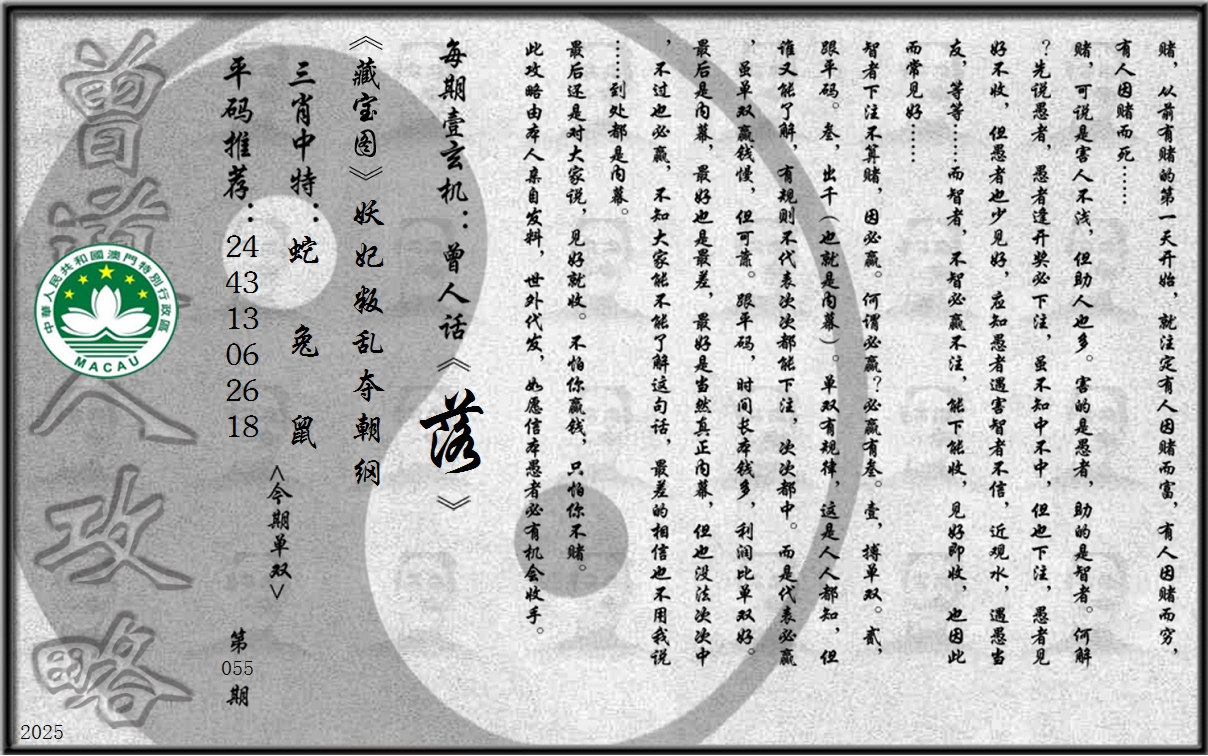 赌，从前有赌的第一天开始，就注定有人因赌而富，有人因赌而穷，
有人因赌而死……
赌，可说是害人不浅，但助人也多。害的是愚者，助的是智者。何解
？先说愚者，愚者逢开奖必下注，虽不知中不中，但也下注，愚者见
好不收，但愚者也少见好，应知愚者遇害智者不信，近观水，遇愚当
友，等等……而智者，不智必赢不注，能下能收，见好即收，也因此
而常见好……
智者下注不算赌，因必赢。何谓必赢？必赢有叁。壹，搏单双。贰，
跟平码。叁，出千（也就是内幕）。单双有规律，这是人人都知，但
谁又能了解，有规则不代表次次都能下注，次次都中。而是代表必赢
，虽单双赢钱慢，但可靠。跟平码，时间长本钱多，利润比单双好。
最后是内幕，最好也是最差，最好是当然真正内幕，但也没法次次中
，不过也必赢，不知大家能不能了解这句话，最差的相信也不用我说
……到处都是内幕。
最后还是对大家说，见好就收。不怕你赢钱，只怕你不赌。
此攻略由本人亲自发料，世外代发，如愿信本愚者必有机会收手。
每期壹玄机：曾人话《落》
《藏宝图》妖妃叛乱夺朝纲
三肖中特：蛇 兔 鼠
<今期单双>
平码推荐：
24
43
13
06
26
18
第
055
期
曾道人攻略
中華人民共和國澳門特別行政區
MACAU
2025